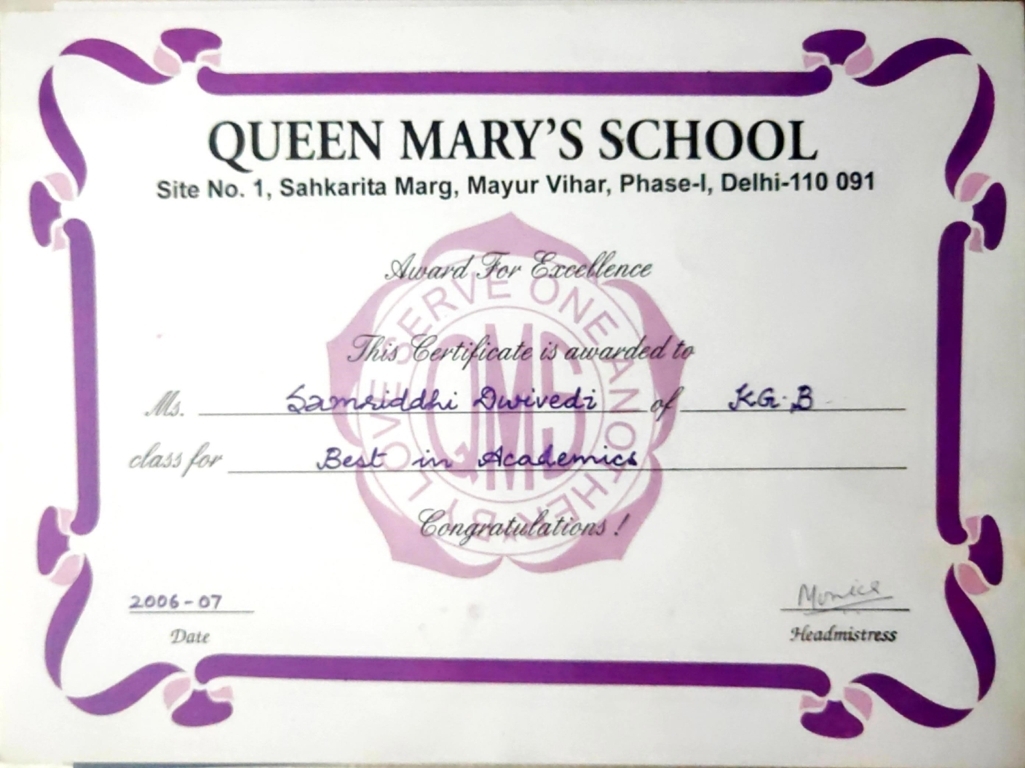 QUEEN MARY'S SCHOOL
Site No. 1, Sahkarita Marg, Mayur Vihar, Phase-I, Delhi-110 091
Award For Excellence
BY LOVE SERVE ONE ANOTHER
QMS
This Certificate is awarded to
Ms. Samriddhi Dwivedi of KG-B
class for Best in Academics
Congratulations !
2006-07
Date
Monica
Headmistress